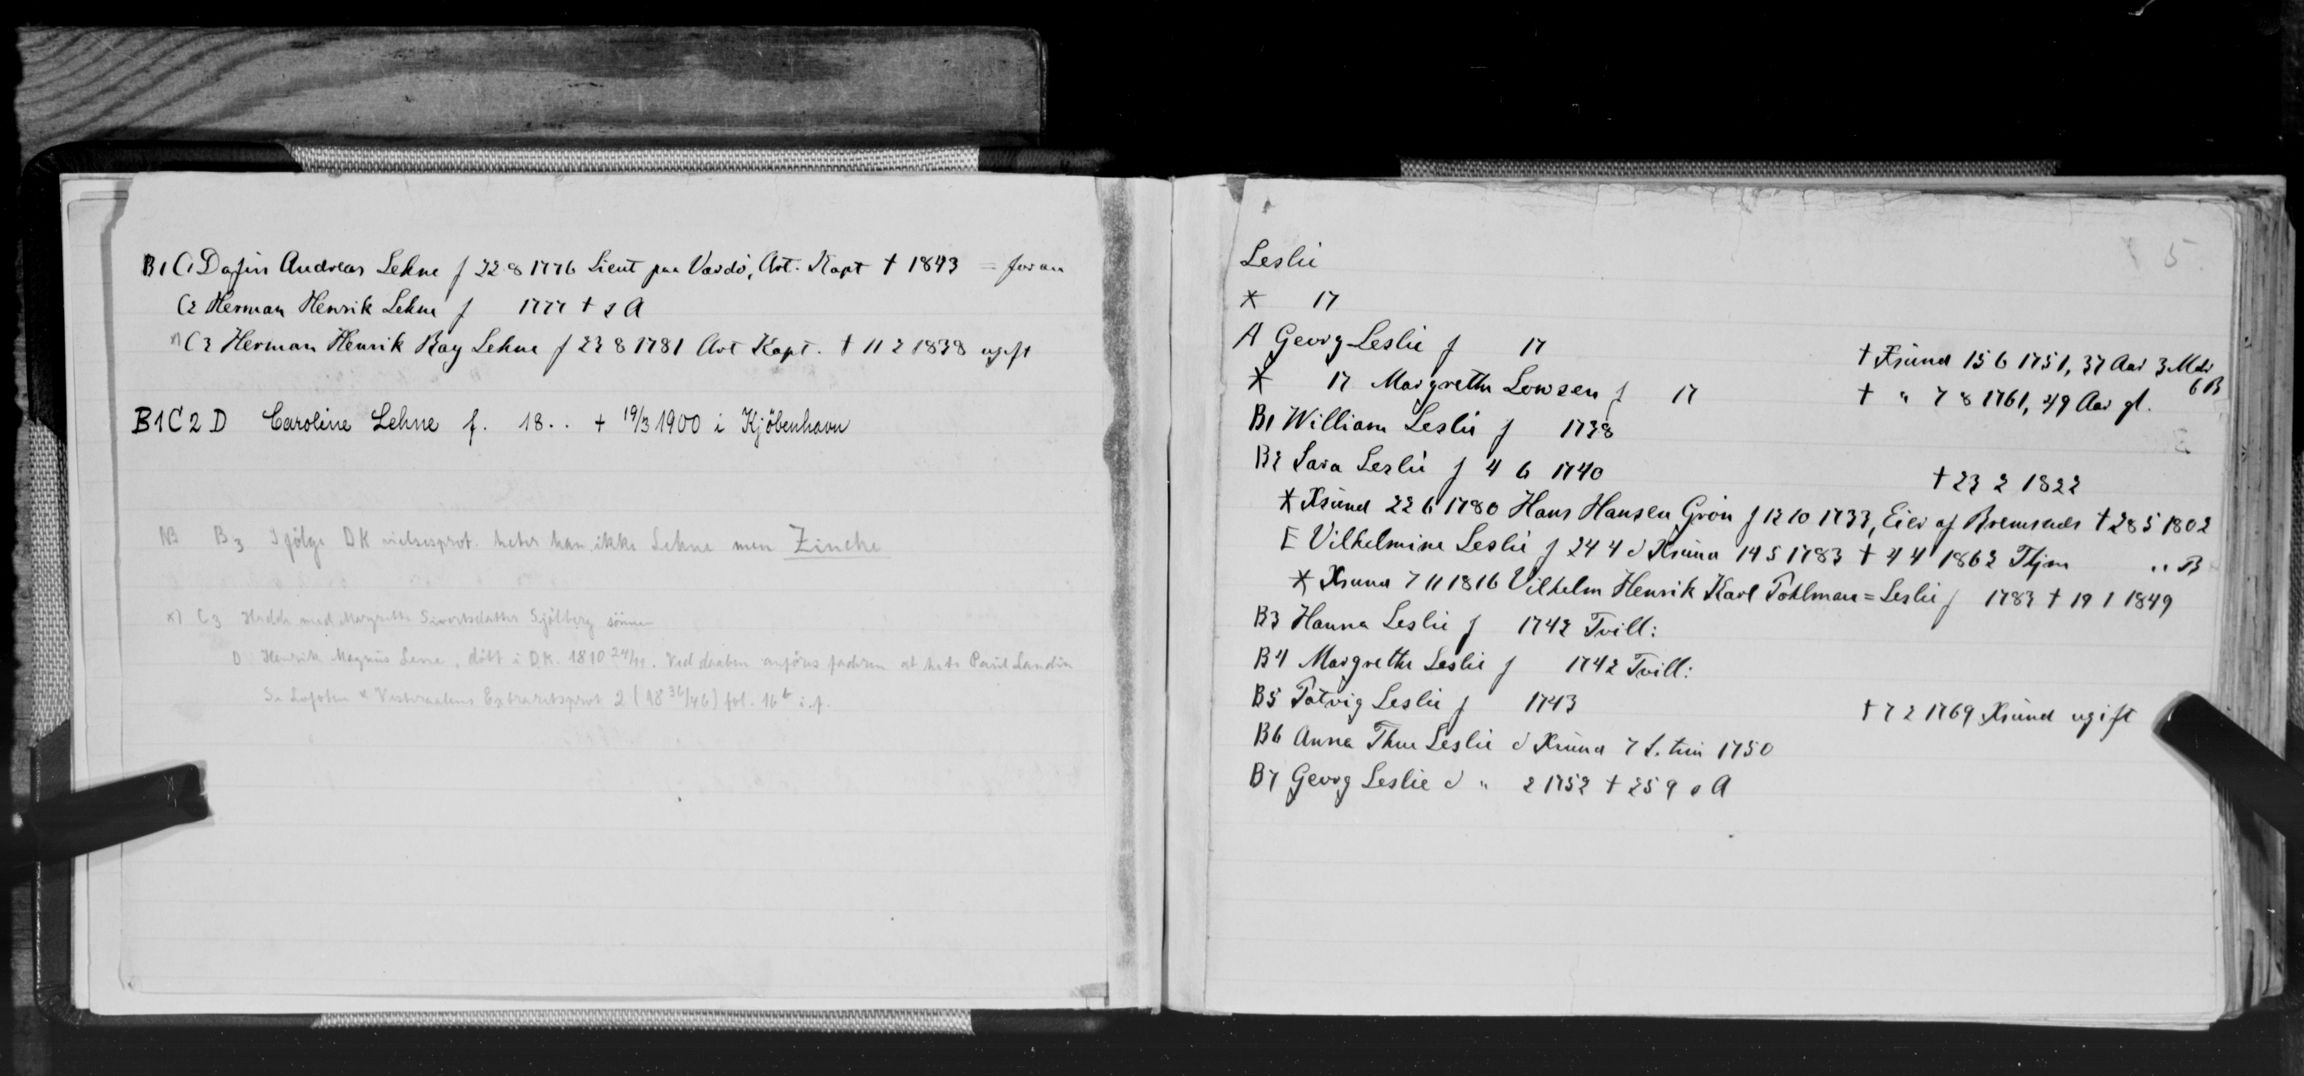 B1 C1 Dafin Andreas Lehne f 22 8 1776 Lieut paa Vardö, Art. Kapt † 1843 = foran
C2 Herman Henrik Lehne f 1777 † s A
*) C3 Herman Henrik Ray Lehne f 23 8 1781 Art Kapt. † 11 2 1838 ugift
B1C2D Caroline Lehne f. 18.. + 19/3 1900 i Kjöbenhavn
NB B3 Ifölge DK vielsesprot. heter han ikke Lehne men Zincke
*) C3 Hadde med Margrethe Sivertsdatter Sjölberg sönnen
D Henrik Magnus Lene, döbt i D.K. 1810 24/11. Ved daaben anföres fadren at hete Paul Landin
Se Lofoten & Vesteraalens Extraretsprot 2 (1836/46) fol. 16b i.f.
Leslie
* 17
A Georg Leslie f 17 † Xsund 15 6 1751, 37 Aar 3 Mdr 6 B
* 17 Margrethe Lowsen f 17 † " 7 8 1761, 49 Aar gl.
B1 William Leslie f 1738
B2 Sara Leslie f 4 6 1740 † 23 2 1822
* Xsund 22 6 1780 Hans Hansen Grön f 12 10 1733, Eier af Bremsnes † 28 5 1802
E Vilhelmine Leslie f 24 4 d Xsund 14 5 1783 † 4 4 1862 Thjm " B
* Xsund 7 11 1816 Vilhelm Henrik Karl Pohlman = Leslie f 1783 † 19 1 1849
B3 Hanna Leslie f 1742 Tvill:
B4 Margrethe Leslie f 1742 Tvill:
B5 Patvig Leslie f 1743 † 7 2 1769 Xsund ugift
B6 Anna Thue Leslie d Xsund 7 S. trin 1750
B7 Georg Leslie d " 2 1752 † 25 9 s A